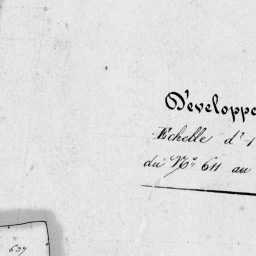 Développe
Echelle d'1
du N° 611 au
637